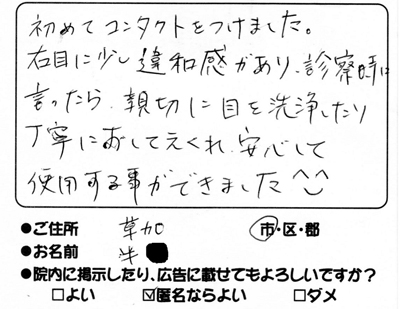 初めてコンタクトをつけました。
右目に少し違和感があり、診察時に
言ったら、親切に目を洗浄したり
丁寧におしてえくれ、安心して
使用する事ができました^‿^
●ご住所 草加 市・区・郡
●お名前 半
●院内に掲示したり、広告に載せてもよろしいですか?
□よい ☑匿名ならよい □ダメ